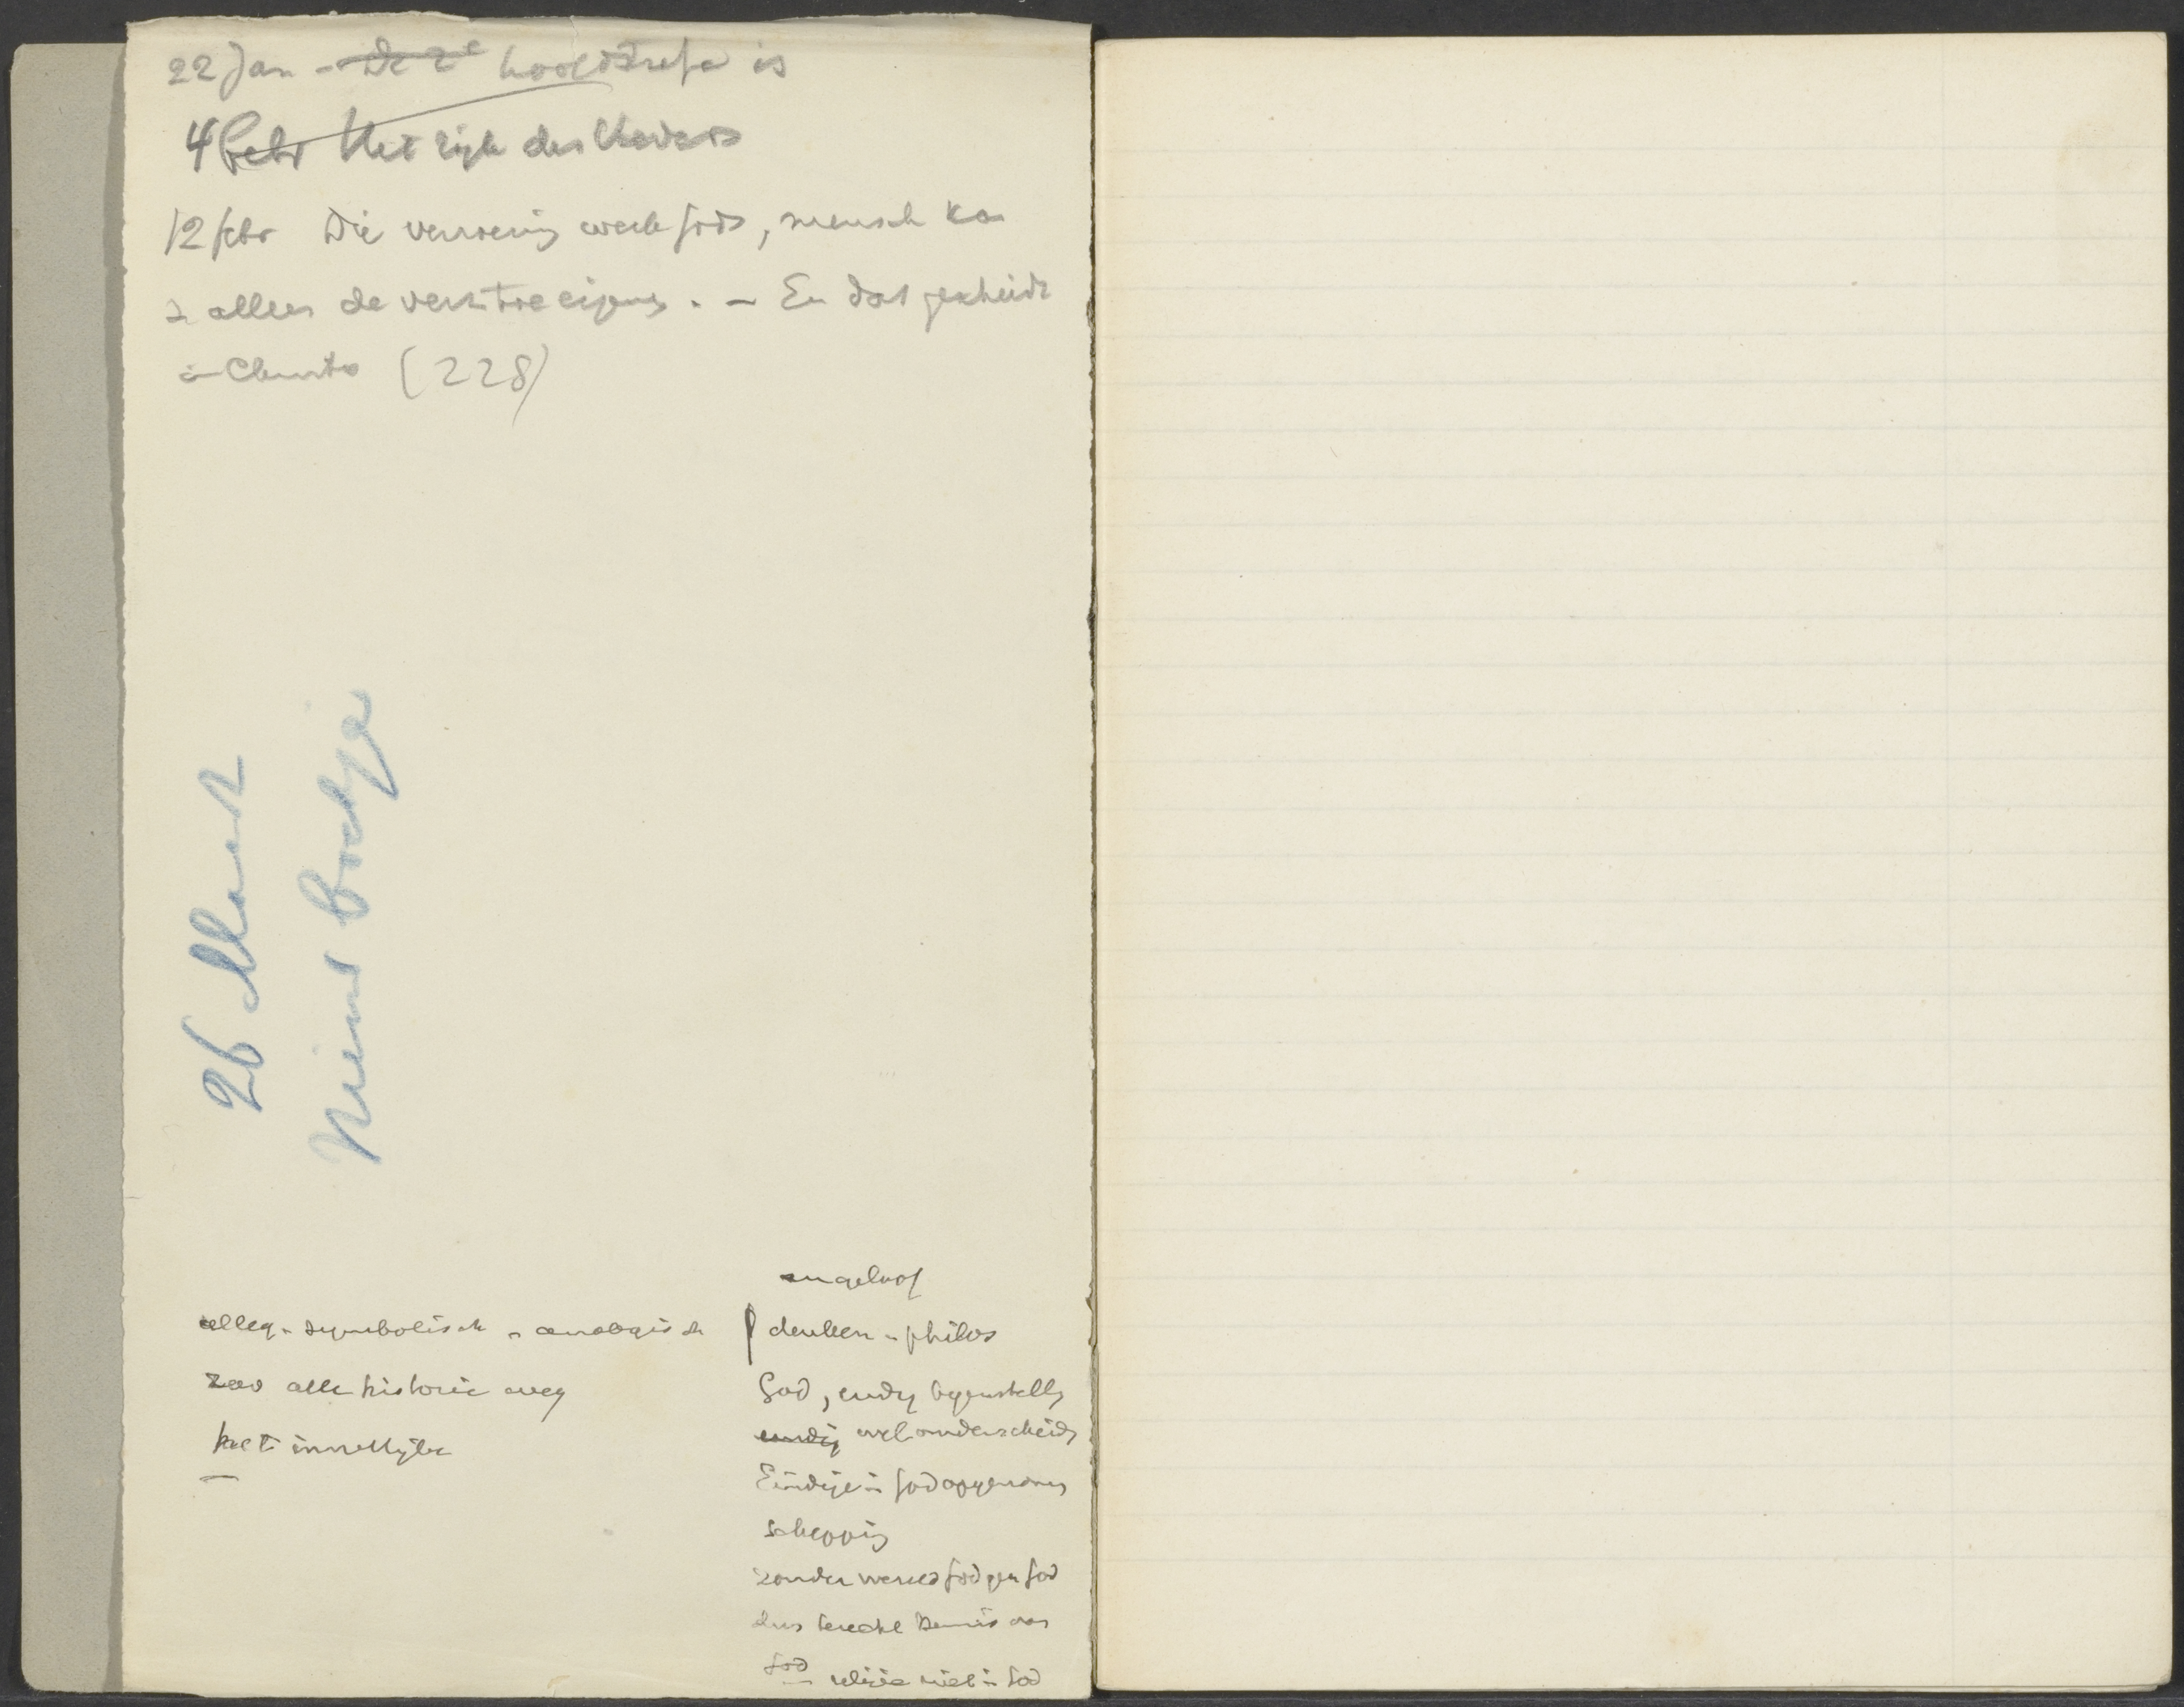 22 Jan - De 2e hoofdtrefw is
4 Febr Het rijk des Vaders
12 febr Die verzoening werk Gods, mensch kan
z alleen de verz. toeeigenen. - En dat geschiedt
in Christo (228)
26 Maart
Nieuw boekje
alleg - symbolisch - analogisch
zoo alle historie weg
het innerlijke
ongeloof
denken - philos
God, eindig tegenstelling
eindig wel onderscheidg
Eindige in God opgenomen
schepping
zonder wereld God geen God
dus kennis van
God
religie niet in God